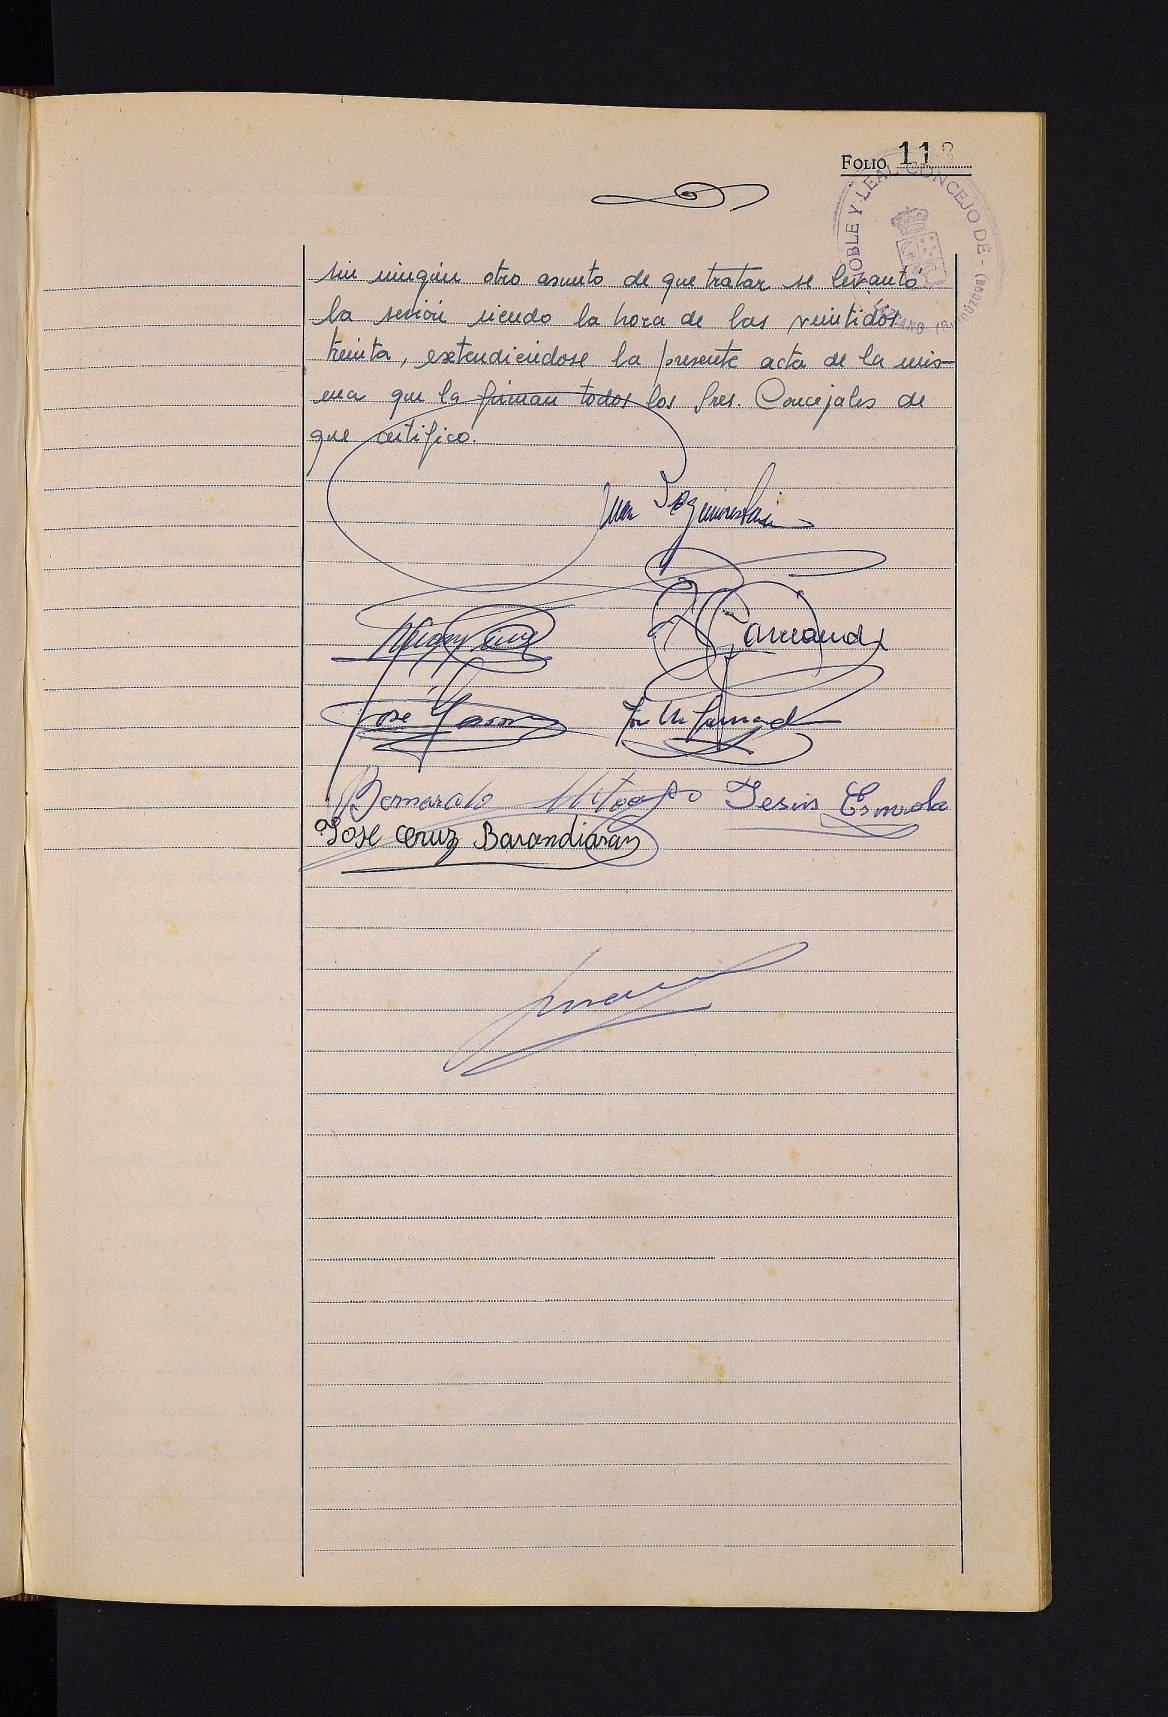 FOLIO 118
NOBLE Y LEAL CONCEJO DE -
sin ningún otro asunto de que tratar se levantó
la sesión siendo la hora de las veintidos
treinta, extendiéndose la presente acta de la mis-
ma que la firman todos los Sres. Concejales de
que certifico.
Juan
Garriandi
José
Bernardo Jesús Esnaola
Jose Cruz Barandiarán